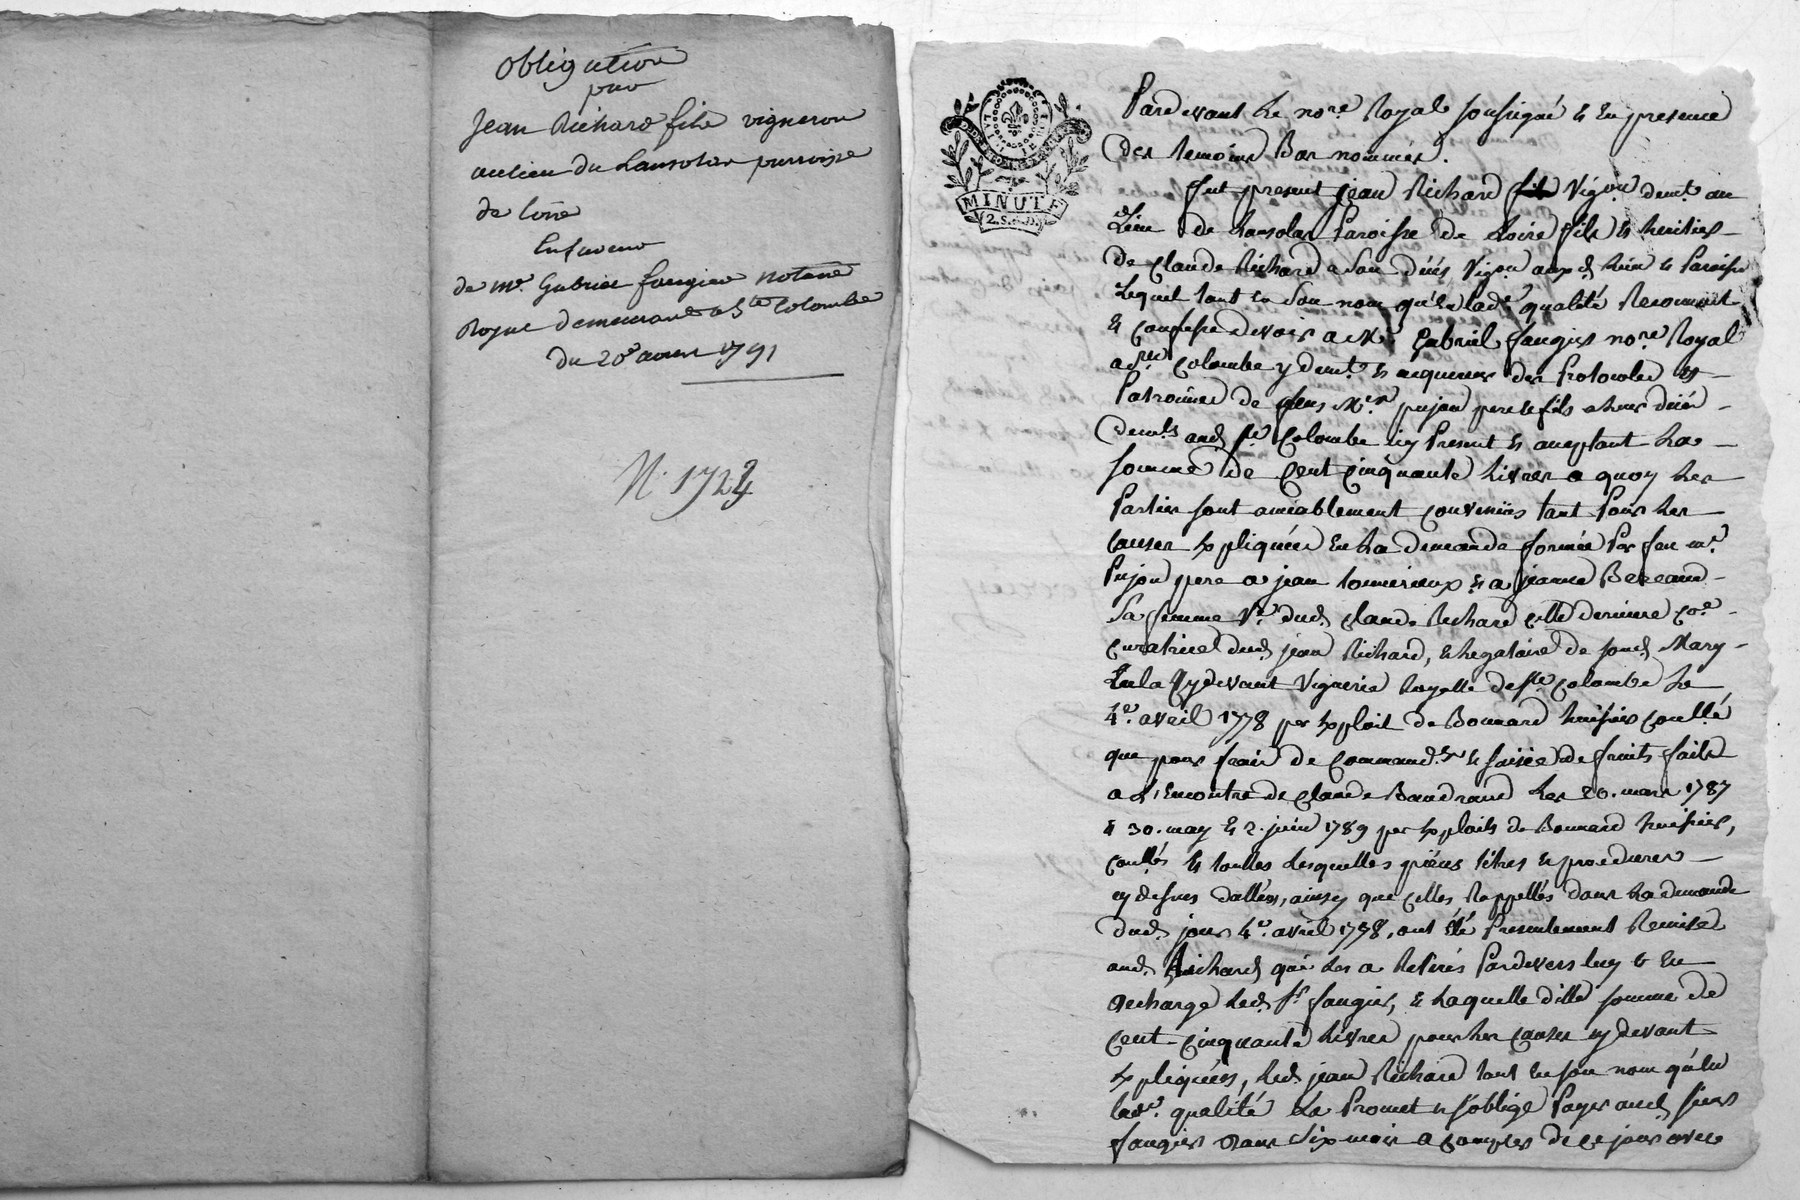 Obligation
par
Jean Richard fils vigneron
au lieu du Lansolas parroisse
de Loire
En faveur
de mr. Gabriel faugier notaire
Royal demeurant a Ste Colombe
du 20e avril 1791
N. 1724
MINUTE
2.S.
Pardevant Le nore. Royal soussigné & En presence
Des temoins Bas nommés.
fut present jean Richard fils Vigon. demt. au
Lieu de Lansolas Paroisse de Loire fils & heritier
De Claude Richard a son décés Vigon. auxd. Lieu & Paroisse
Lequel tant en son nom qu'en lade. qualité Reconnoit
& Confesse devoir a Me. Gabriel faugier nore. Royal
a Ste Colombe y demt. & acquereur des Protocoles &
Patronnes de feus Mes. pujon pere & fils a leur décés
demts. aud. Ste. Colombe icy Present & acceptant La
somme de Cent Cinquante Livres a quoy Les
Parties sont amiablement convenües tant Pour Les
causes Expliquées En La demande formée Par feu me.
Pujon pere a jean & a jeanne
Sa femme Ve. dud. Claude Richard cette derniere Coe.
curatrice dud. jean Richard, & Legataire de soud. Mary
En la Cydevant Viguerie Royalle de Ste. Colombe Le
4e. avril 1778 par Exploit de Bonnard huissier Conllé
que pour frais de Commandt. & saisie de fruits faits
a L'Encontre de Claude Baudrand Les 20. mars 1787
& 30. may & 2. juin 1789 par Exploits de Bonnard huissier,
conllés & toutes Lesquelles piéces titres & procedures
cy dessus dattées, ainsy que celles Rappellés dans La demande
dud. jour 4e. avril 1778, ont été Presentement Remises
aud. Richard qui Les a Retirés Pardevers luy & En
decharge Led. sr. faugier, & Laquelle ditte somme de
Cent-Cinquante Livres pour Les causes cy devant
Expliquées, Led. jean Richard tant En son nom qu'En
lade. qualité La Promet & s'oblige Payer aud. sieur
faugier Dans Six mois a Compter de ce jour avec